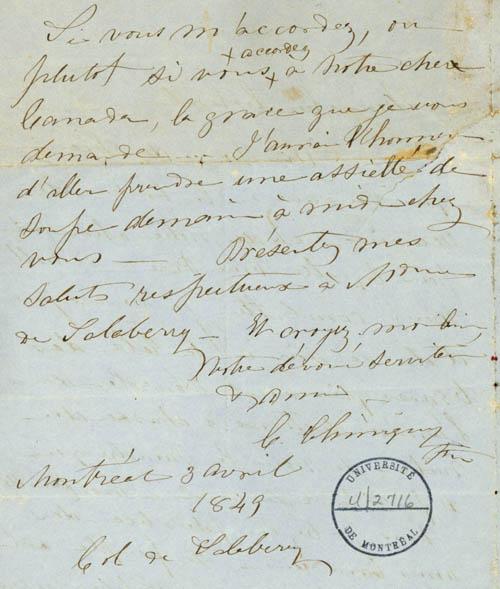 Si vous m'accordez, ou
plutot si vous + accordez + à notre chere
Canada, la grace que je vous
demande .... J'aurai l'honneur
d'aller prendre une assiette de
soupe demain à midi chez
vous — Présentez mes
saluts respectueux à Mme
de Salaberry — Et croyez moi bien
Votre dévoué serviteur
& ami
C. Chiniquy
Montréal 3 avril
1849
Col de Salaberry
UNIVERSITÉ
U/2716
DE MONTRÉAL